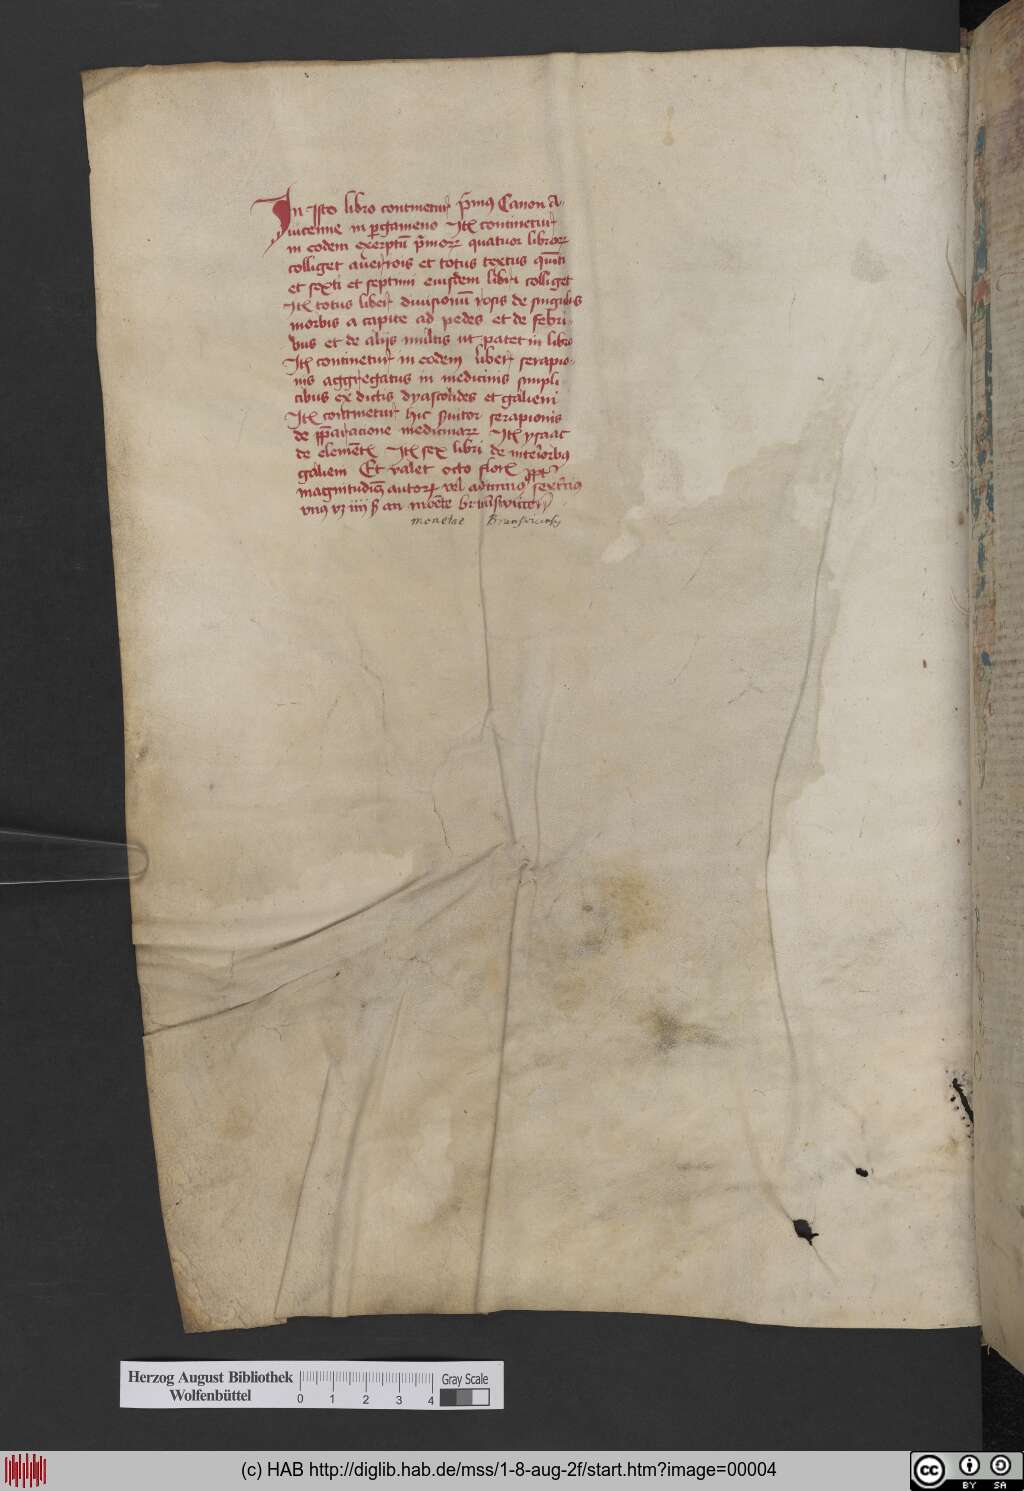 In Isto libro continetur p̄mꝰ Canon A-
uicenne in ꝑgameno Itē continetur
in eodem exerptū p̄morꝝ quatuor librorꝝ
colliget auerrois et totus textus qui̅ti
et sexti et septimi eiusdem libri colliget
Itē totus liber diuisionū rosis de singulis
morbis a capite ad pedes et de febri-
bus et de aliis multis ut patet in libro
Itē continetur in eodem liber serapio-
nis aggregatus in medicinis simpli
cibus ex dictis dyascolides et galieni
Itē continetur hic seruitor serapionis
de p̄paracione medicinarꝝ Itē ysaac
de elementꝭ Itē sex libri de interiorbꝰ
galieni Et valet octo florꝭ
magnitudīe autorꝝ vel
vnꝰ iiii monete brunswicen
monetae Brunsvicensis
Herzog August Bibliothek
Wolfenbüttel
0 1 2 3 4
Gray Scale
(c) HAB http://diglib.hab.de/mss/1-8-aug-2f/start.htm?image=00004
cc BY SA